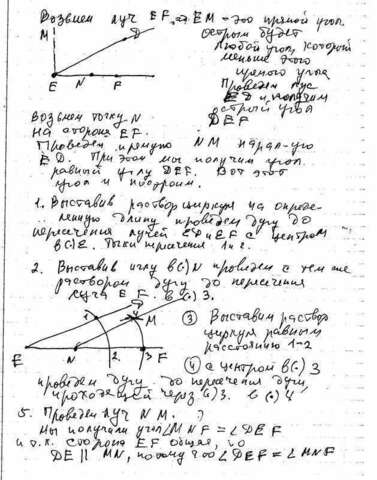 Возьмем луч EF, EM - это прямой угол.
M
D
острым будет
любой угол, который
меньше этого
прямого угла
E N F
Проведем луч
ED и получим
острый угол
DEF
Возьмем точку N
на стороне EF.
Проведем прямую NM парал-но
ED. При этом мы получим угол
равный углу DEF. Вот этот
угол и построим.
1. Выставив раствор циркуля на опреде-
ленную длину проведем дугу до
пересечения лучей ED и EF с центром
в (.) E. Точки пересечения 1 и 2.
2. Выставив иглу в (.) N проведем с тем же
раствором дугу до пересечения
луча EF. в (.) 3.
D
1 4 M
E N 2 3 F
3 Выставим раствор
циркуля равным
расстоянию 1-2
4 с центром в (.) 3
проведем дугу до пересечения дуги,
проходящей через (.) 3. в (.) 4,
5. Проведем луч NM. ?
Мы получили угол ∠MNF = ∠DEF
и т.к. сторона EF общая, то
DE || MN, потому что ∠DEF = ∠MNF